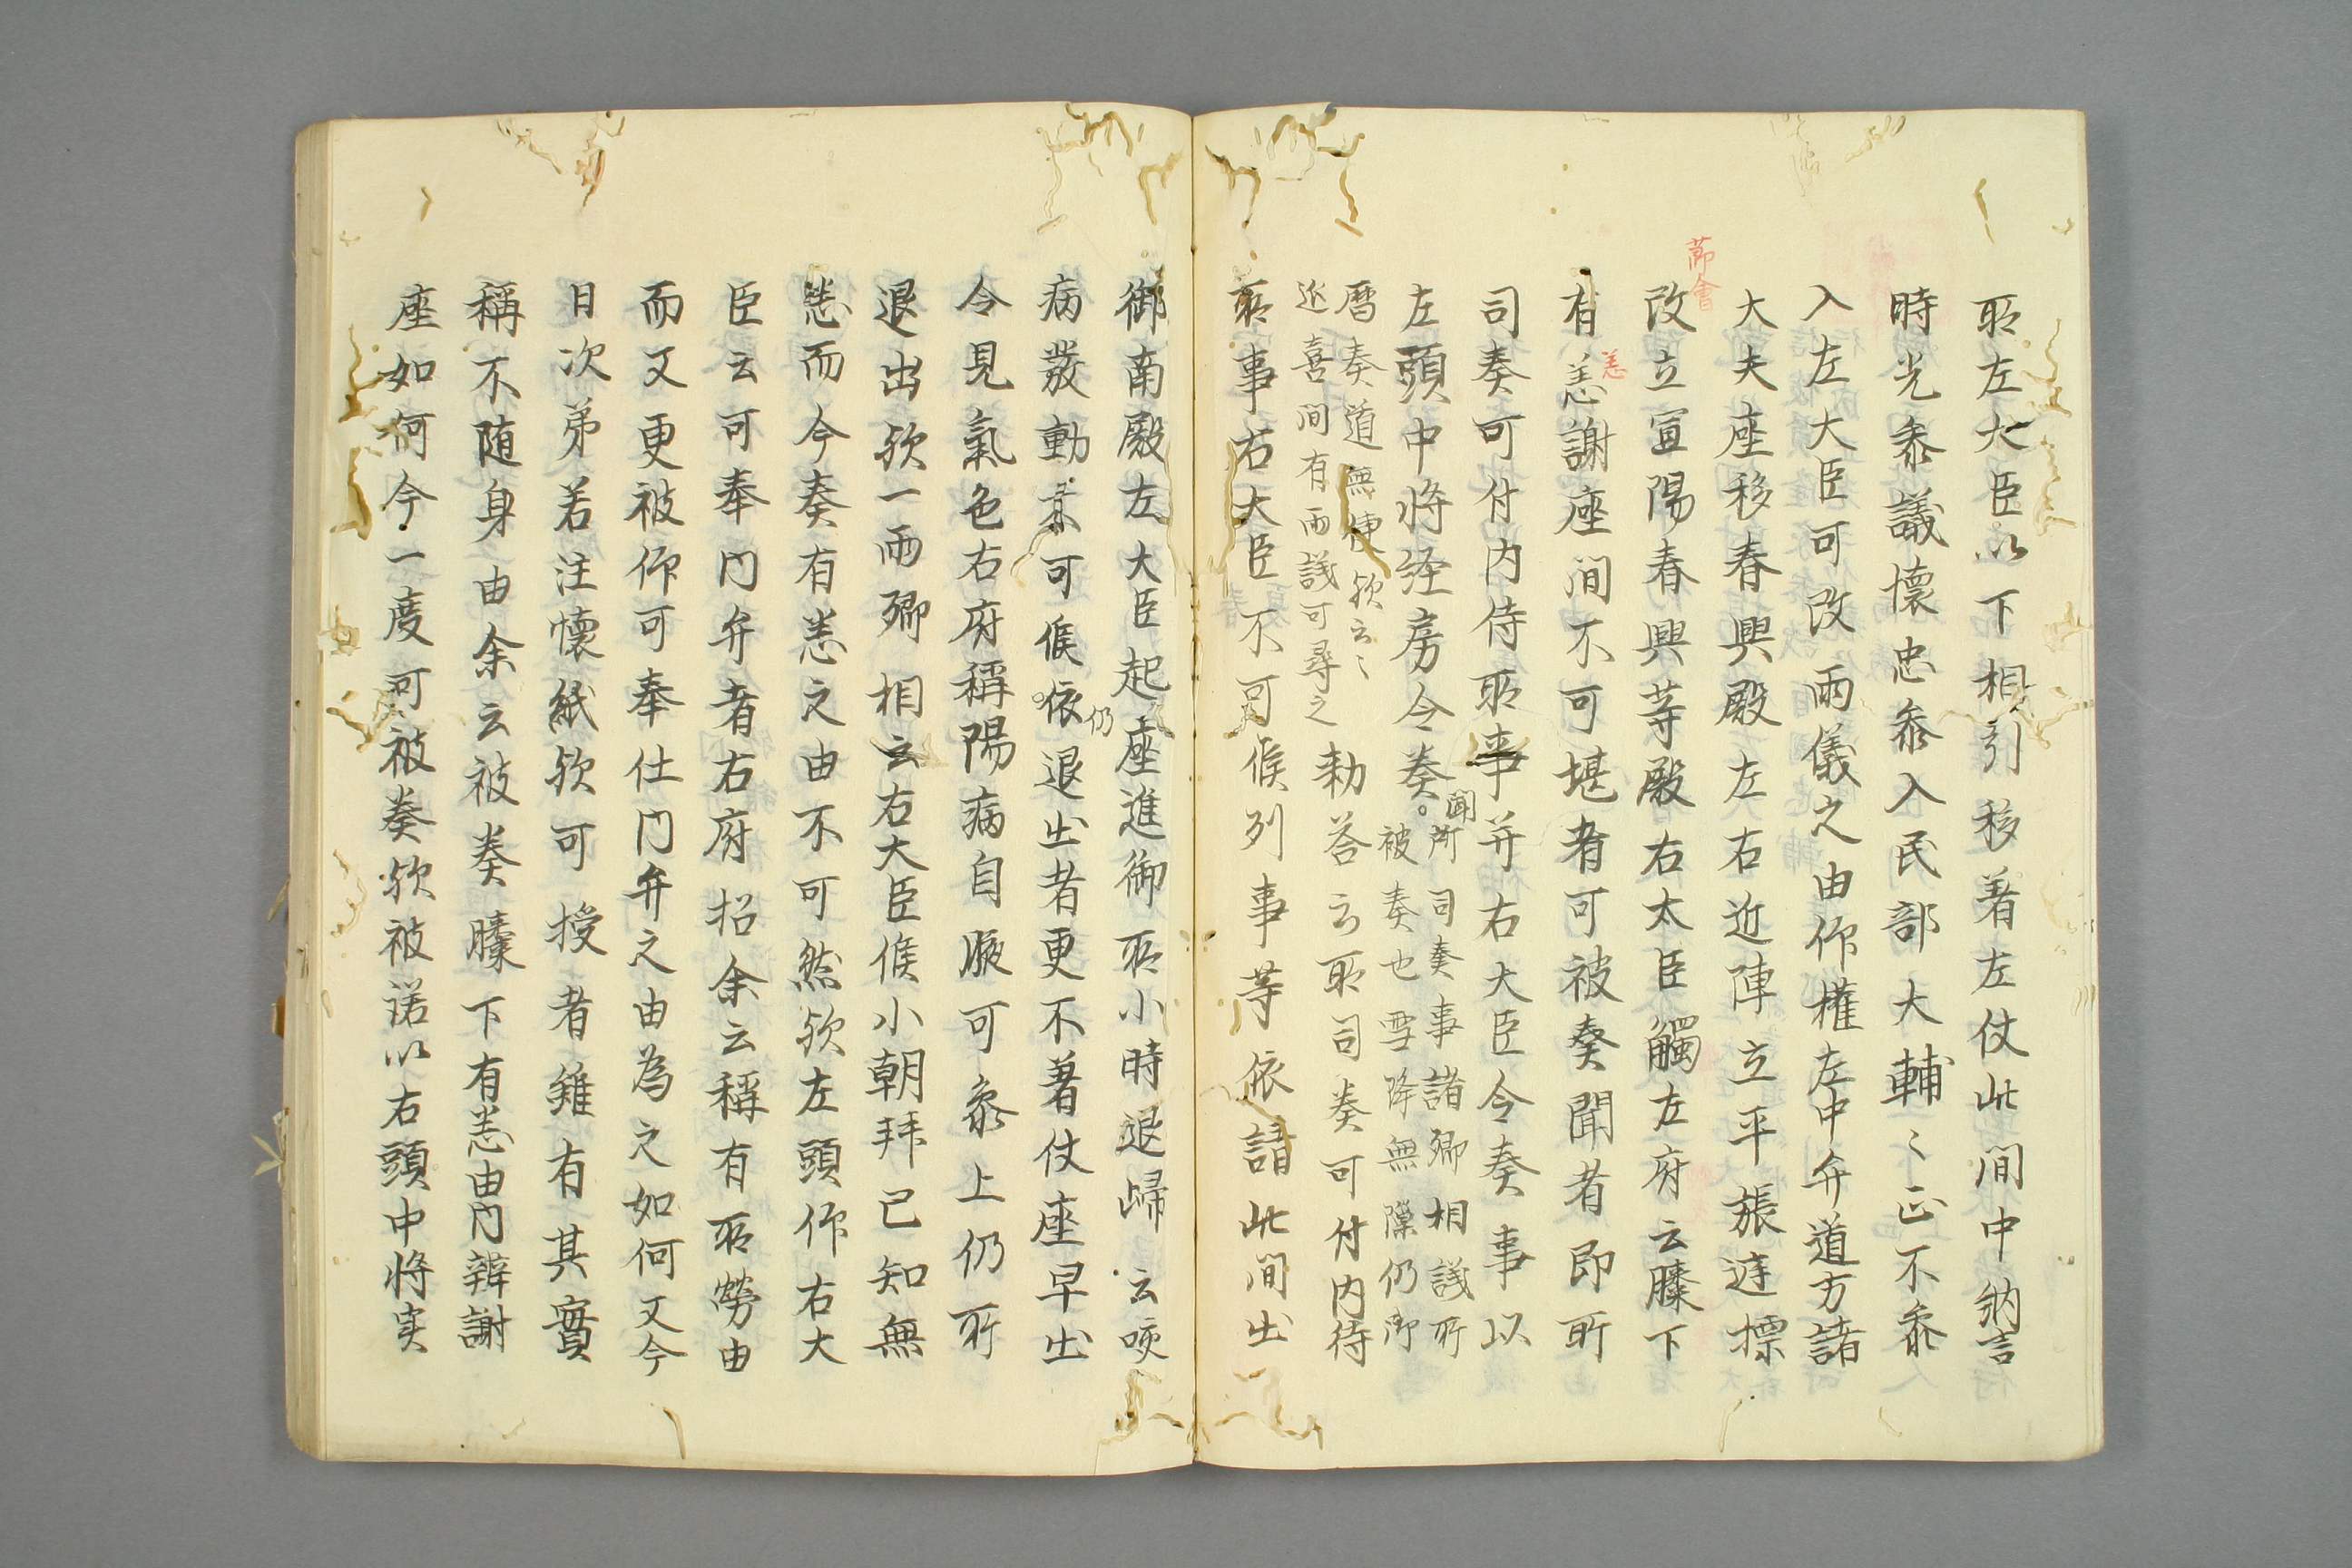 所左大臣以下相引移著左仗此間中納言
時光参議懐忠参入民部大輔〻正不参
入左大臣可改雨儀之由仰権左中弁道方諸
大夫座移春興殿左右近陣立平張違標
節會
改立宜陽春興等殿右太臣觸左府云膝下
有恙謝座間不可堪者可被奏聞者即所
恙
司奏可付内侍所事并右大臣令奏事以
左頭中将経房令奏。聞
所司奏事諸卿相議所
被奏也雪降無隙仍御
暦奏道無便歟云〻
延喜間有雨議可尋之
勅答云所司奏可付内侍
所事右大臣不可候列事等依請此間出
御南殿左大臣起座進御所小時退帰云咳
病發動業可候。依退出者更不著仗座早出
仍
今見氣色右府稱陽病自腋可参上仍所
退出歟一両卿相云右大臣候小朝拜已知無
恙而今奏有恙之由不可然歟左頭仰右大
臣云可奉門弁者右府招余云稱有所勞由
而又更被仰可奉仕門弁之由為之如何又今
日次第若注懐紙歟可授者雖有其實
稱不随身由余云被奏膝下有恙由門辨謝
座如何今一度可被奏歟被諾以右頭中将実